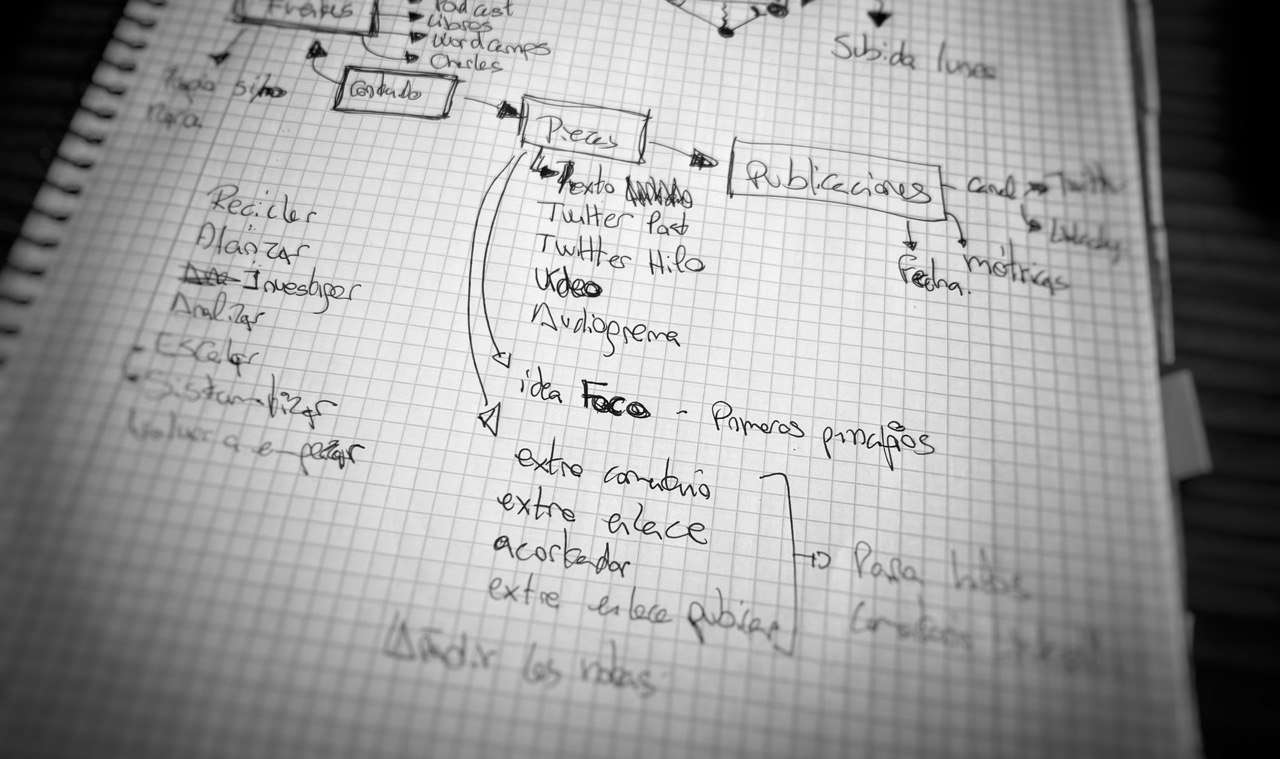 Fuentes
Podcast
Libros
Wordcamps
Charlas
Subida lunes
Contenido
Piezas
Texto
Twitter Post
Twittter Hilo
Video
Audiograma
Publicaciones
Canal
Fecha.
métricas
Reciclar
Afianzar
Investigar
Analizar
- Escalar
- Sistematizar
Volver a empezar
idea Foco - Primeros principios
extra comentario
extra enlace
acortador
extra enlace publicar
Para hilos
Añadir las notas